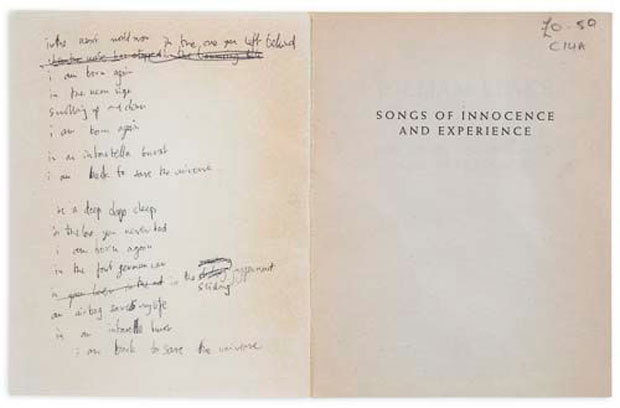 in the next world war in love, one you left behind
i am born again
in the neon sign
scrolling up and down
i am born again
in an interstella burst
i am back to save the universe
in a deep deep sleep
in the love you never had
i am born again
in the fast german car
in the
sliding
an airbag saved my life
in an interstella burst
i am back to save the universe
£0-50
SONGS OF INNOCENCE
AND EXPERIENCE